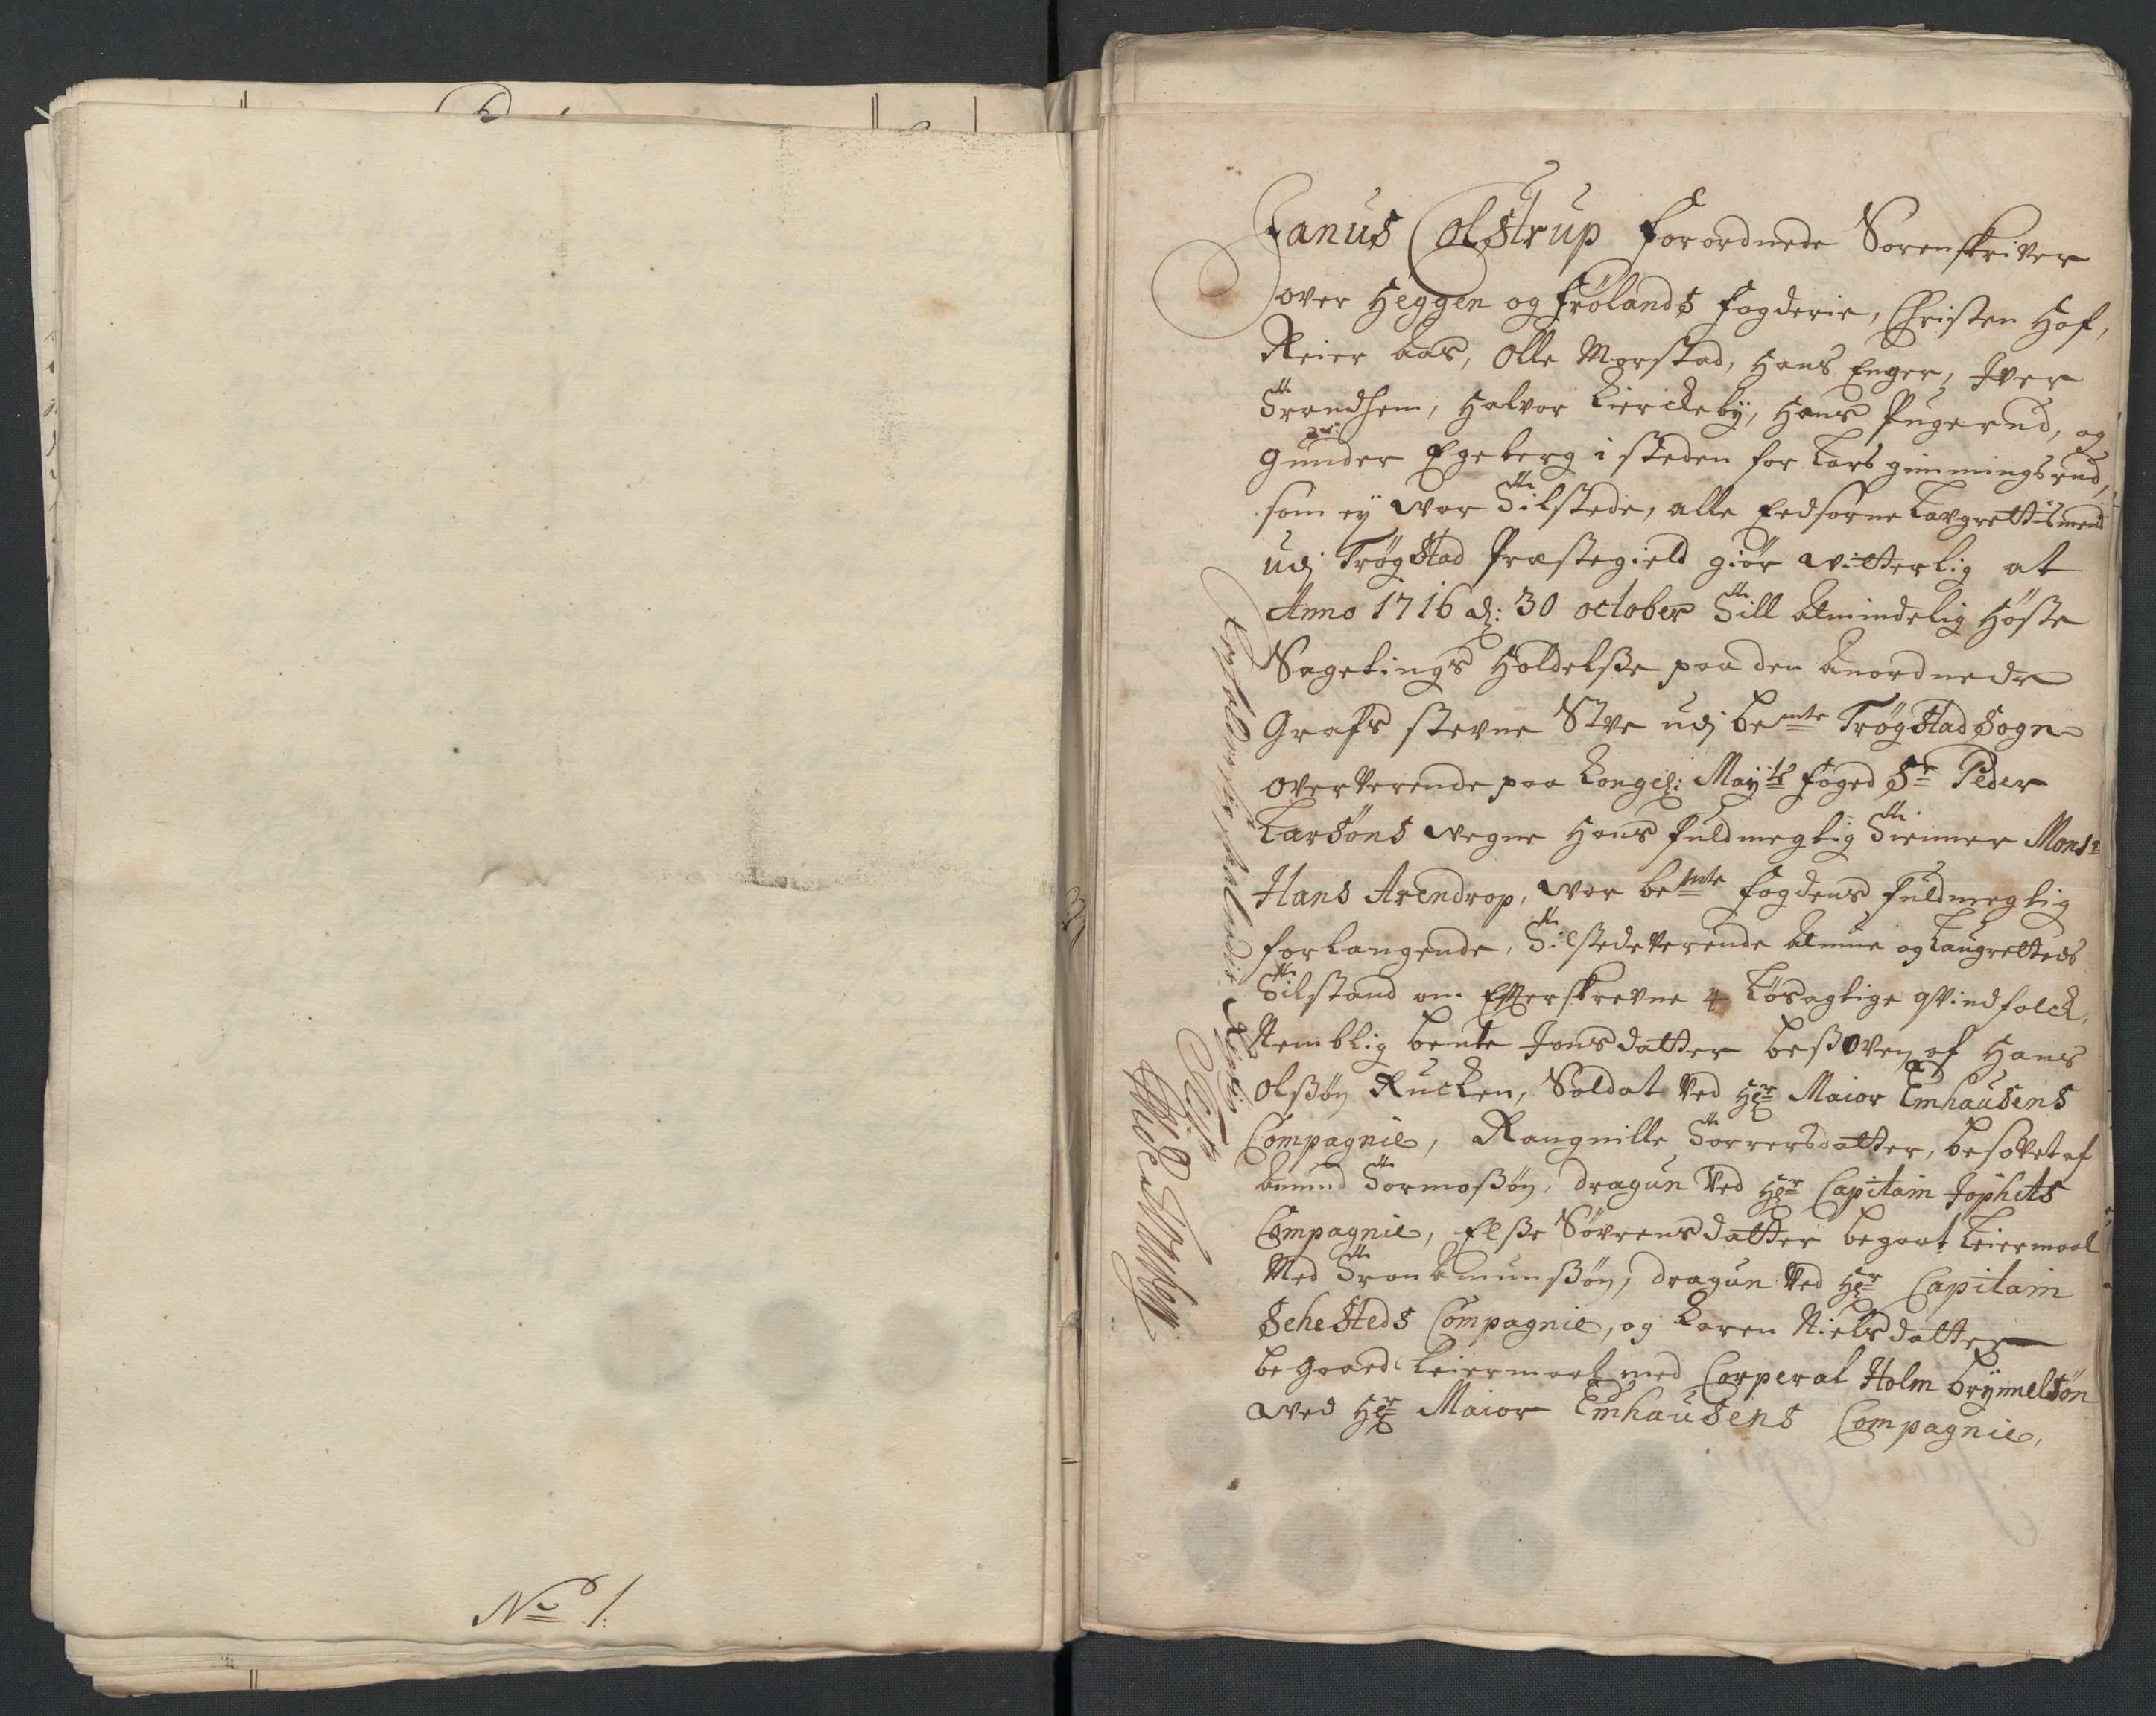 No 1.
Janus Colstrup forordnede Sorenskriver
over Heggen og Frølands fogderie, Christen Hof,
Reier Aas, Olle Morstad, Hans Enger, Iver
Trondhem, Halvor Kierckebÿ, Hans Pugerud, og
Gunder Egeberg i steden for Lars gimmingsrud,
som eÿ war Tilstede, alle Eedsorne Laugrettismend
udj Trøgstad Præstegield giør witterlig at
Anno 1716 d: 30 october Till Almindelig Høste
Sagetings Holdelsse paa den Anordnede
Grafs stevne Stue udj bemte Trøgstad Sogn
overVerende paa Kongel: Mayts foged Sr Peder
Larsøns wegne Hans fuldmegtig Tieiner Monsr
Hans Arendrop, war bemte fogdens fuldmegtig
forlangende, Tilstedeverende Almue og Laugrettets
Tilstand om Efterskrevne 4 Løsagtige qvindfolck,
Nemblig Bente Jonsdatter beßoven af Hans
Olßøn Rucken, Soldat Ved Hr Maior Emhausens
Compagnie, Rangnille Torrersdatter, besovet af
Amund Tormoßøn, dragun Ved Hr Capitain Jophets
Compagnie, Elße Søvrensdatter begaat Leiermaal
Med Tron Amunßøn, dragun Ved Hr Capitain
Sehesteds Compagnie, og Karen Nielsdatter
begaaed Leiermaal med Corperal Holm Brÿnnelsøn
wed Hr Maior Emhausens Compagnie,